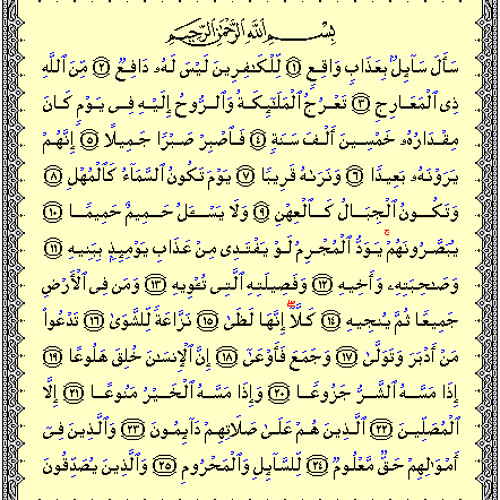 بِسْمِ اللَّهِ الرَّحْمَٰنِ الرَّحِيمِ
سَأَلَ سَآئِلٌۢ بِعَذَابٍ وَاقِعٍ ﴿١﴾ لِّلْكَٰفِرِينَ لَيْسَ لَهُۥ دَافِعٌ ﴿٢﴾ مِّنَ اللَّهِ
ذِى الْمَعَارِجِ ﴿٣﴾ تَعْرُجُ الْمَلَٰٓئِكَةُ وَالرُّوحُ إِلَيْهِ فِى يَوْمٍ كَانَ
مِقْدَارُهُۥ خَمْسِينَ أَلْفَ سَنَةٍ ﴿٤﴾ فَاصْبِرْ صَبْرًا جَمِيلًا ﴿٥﴾ إِنَّهُمْ
يَرَوْنَهُۥ بَعِيدًا ﴿٦﴾ وَنَرَىٰهُ قَرِيبًا ﴿٧﴾ يَوْمَ تَكُونُ السَّمَآءُ كَالْمُهْلِ ﴿٨﴾
وَتَكُونُ الْجِبَالُ كَالْعِهْنِ ﴿٩﴾ وَلَا يَسْـَٔلُ حَمِيمٌ حَمِيمًا ﴿١٠﴾
يُبَصَّرُونَهُمْ ۚ يَوَدُّ الْمُجْرِمُ لَوْ يَفْتَدِى مِنْ عَذَابِ يَوْمِئِذٍۭ بِبَنِيهِ ﴿١١﴾
وَصَٰحِبَتِهِۦ وَأَخِيهِ ﴿١٢﴾ وَفَصِيلَتِهِ الَّتِى تُـْٔوِيهِ ﴿١٣﴾ وَمَن فِى الْأَرْضِ
جَمِيعًا ثُمَّ يُنجِيهِ ﴿١٤﴾ كَلَّآ ۖ إِنَّهَا لَظَىٰ ﴿١٥﴾ نَزَّاعَةً لِّلشَّوَىٰ ﴿١٦﴾ تَدْعُوا۟
مَنْ أَدْبَرَ وَتَوَلَّىٰ ﴿١٧﴾ وَجَمَعَ فَأَوْعَىٰٓ ﴿١٨﴾ إِنَّ الْإِنسَٰنَ خُلِقَ هَلُوعًا ﴿١٩﴾
إِذَا مَسَّهُ الشَّرُّ جَزُوعًا ﴿٢٠﴾ وَإِذَا مَسَّهُ الْخَيْرُ مَنُوعًا ﴿٢١﴾ إِلَّا
الْمُصَلِّينَ ﴿٢٢﴾ الَّذِينَ هُمْ عَلَىٰ صَلَاتِهِمْ دَآئِمُونَ ﴿٢٣﴾ وَالَّذِينَ فِىٓ
أَمْوَٰلِهِمْ حَقٌّ مَّعْلُومٌ ﴿٢٤﴾ لِّلسَّآئِلِ وَالْمَحْرُومِ ﴿٢٥﴾ وَالَّذِينَ يُصَدِّقُونَ